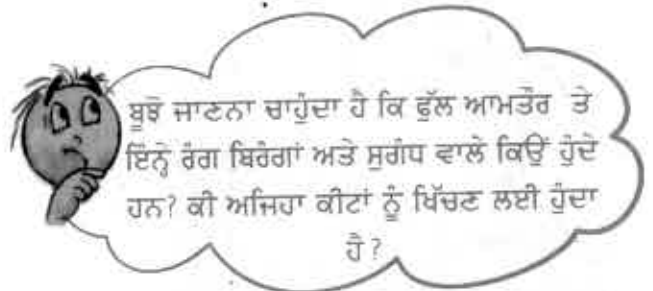 ਬੂਝੋ ਜਾਣਨਾ ਚਾਹੁੰਦਾ ਹੈ ਕਿ ਫੁੱਲ ਆਮਤੌਰ ਤੇ
ਇੰਨ੍ਹੇ ਰੰਗ ਬਿਰੰਗਾਂ ਅਤੇ ਸੁਗੰਧ ਵਾਲੇ ਕਿਉਂ ਹੁੰਦੇ
ਹਨ? ਕੀ ਅਜਿਹਾ ਕੀਟਾਂ ਨੂੰ ਖਿੱਚਣ ਲਈ ਹੁੰਦਾ
ਹੈ?